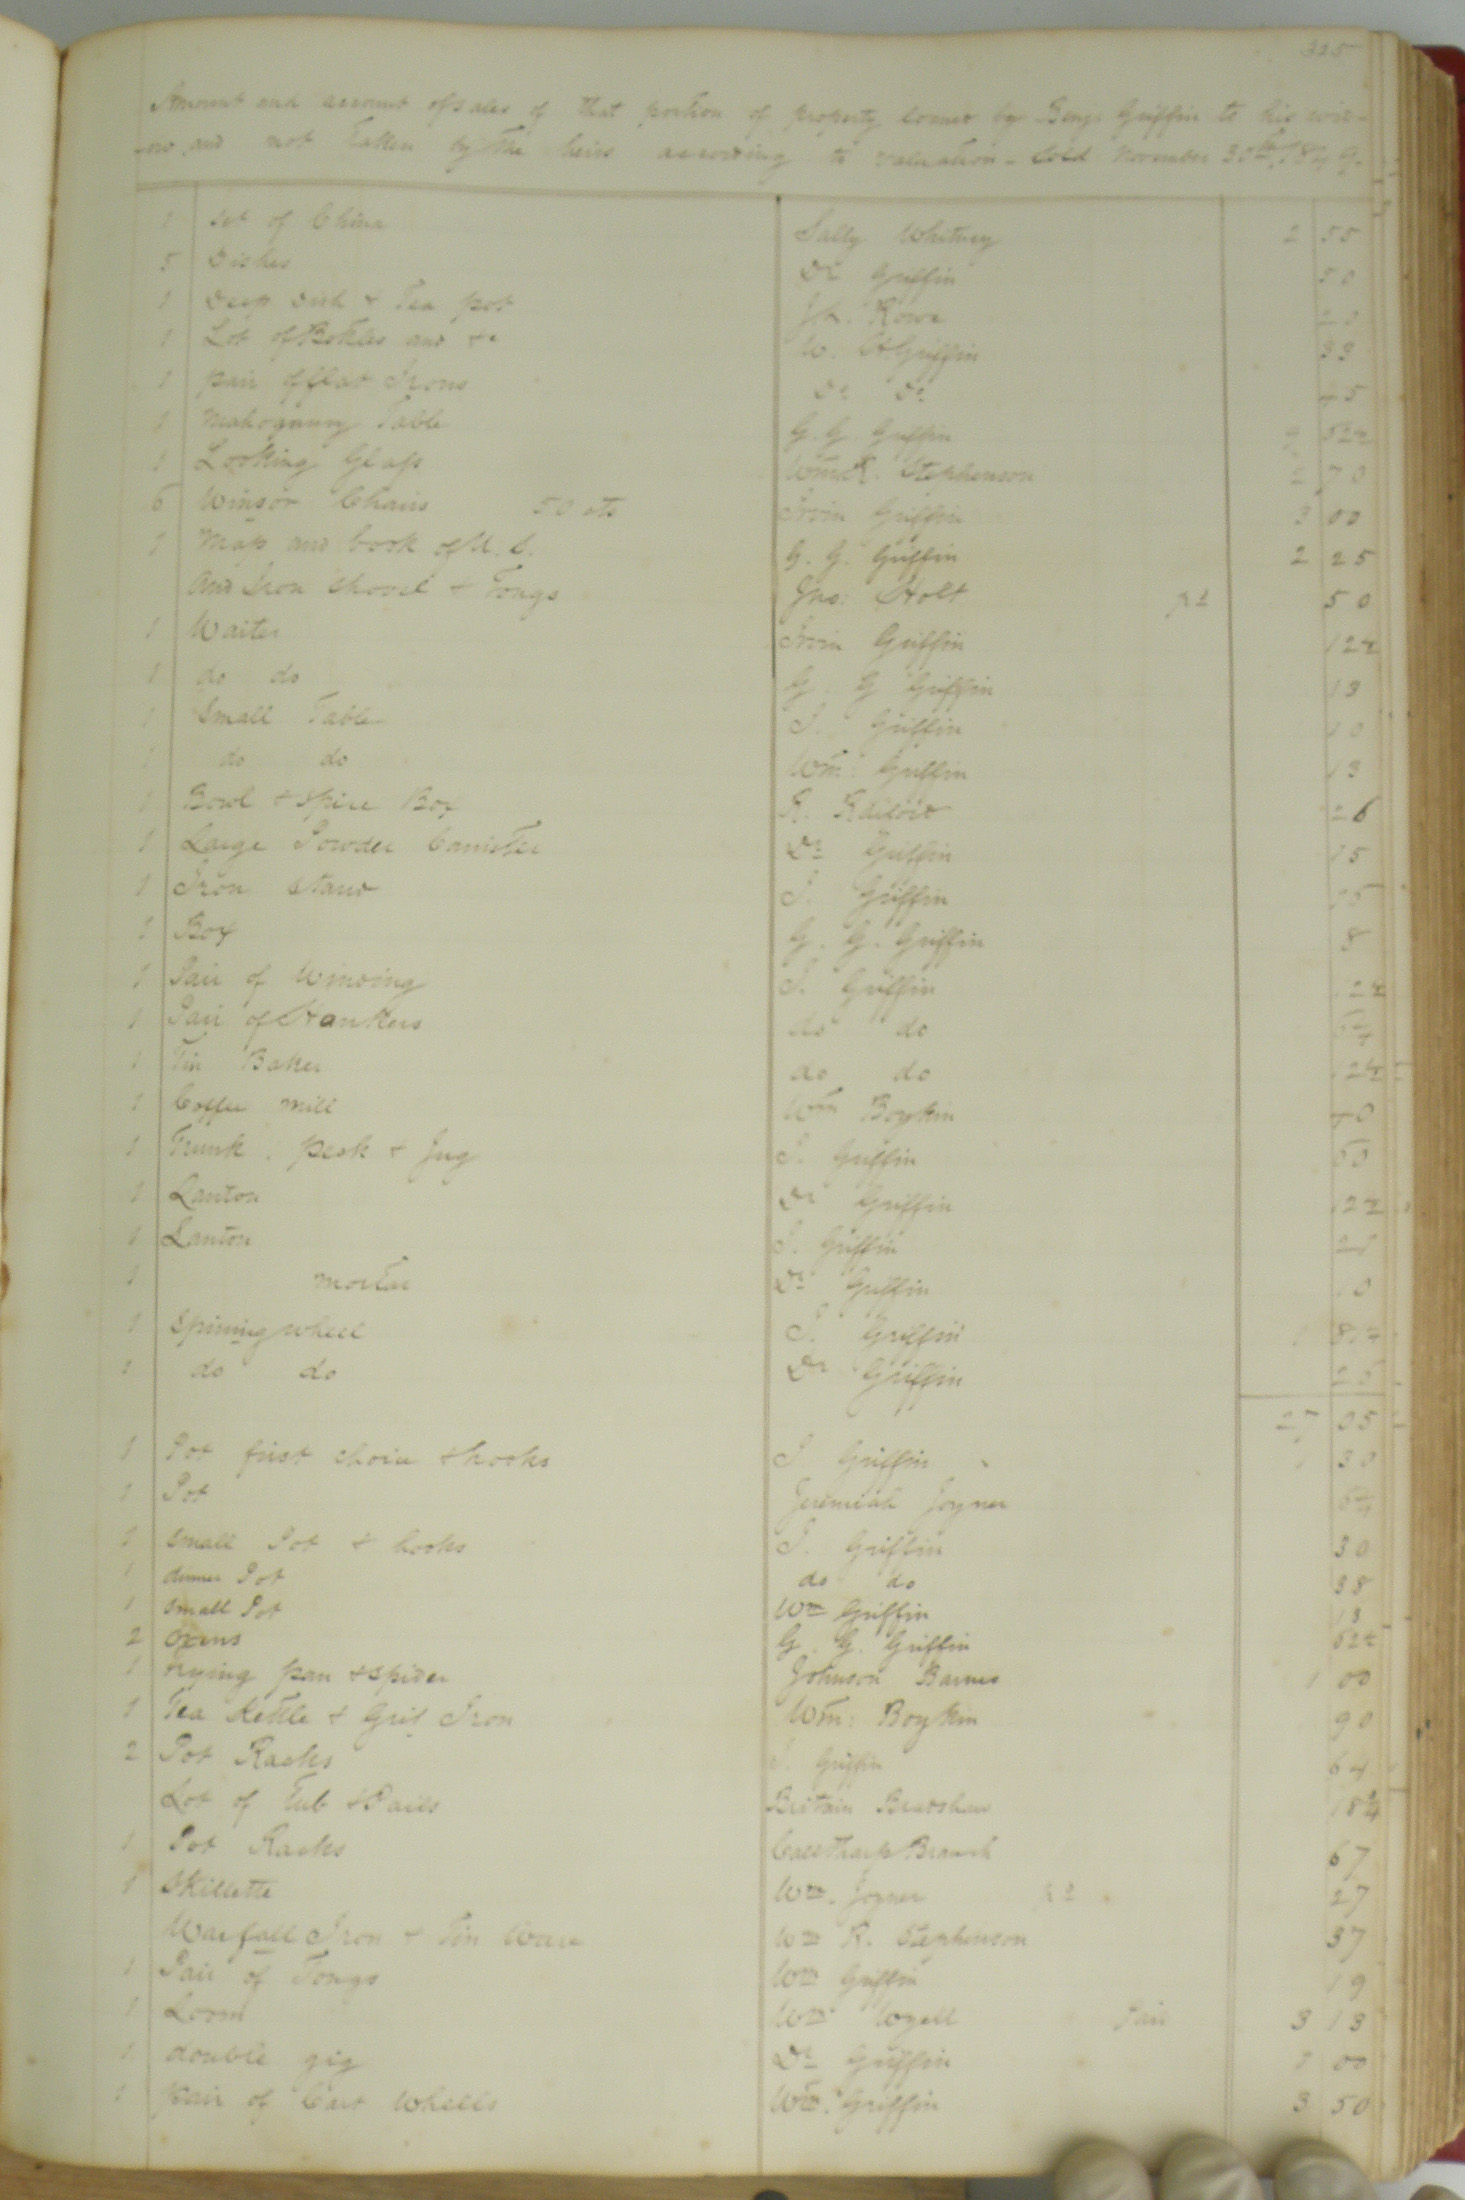 325
Amount and account of sales of that portion of property loaned by Benj. Griffin to his wid-
-ow and not Taken by the heirs according to valuation - Sold November 30th
1 set of China Sally Whitney 2 55
5 Dishes Dr Griffin 50
1 Deep Dish & Tea pot Jn. Rowe 20
1 Lot of Bottles and &c W. H Griffin 33
1 pair of flat Irons Dr Dr 45
1 Mahogany Table G. G Griffin
1 Looking Glass Wm R. Stephenson 2 70
6 Winsor Chairs 50 cts Irvin Griffin 3 00
1 Map and book of U. S. G. G. Griffin 2 25
And Iron Shovel & Tongs Jno. Holt pd 50
1 Waiter Irvin Griffin 12½
1 do do G. G Griffin 13
1 Small Table I. Griffin 10
1 do do Wm: Griffin 13
1 Bowl & Spice Box R. 26
1 Large Powder Canister Dr Griffin 15
1 Iron Stand I. Griffin
1 Box G. G. Griffin 8
1 Pair of Winding I. Griffin 12½
1 Pair of Hankers do do
1 Tin Baker do do 12½
1 Coffee Mill Wm Boykin 40
1 Trunk, peck & Jug I. Griffin
1 Lanton Dr Griffin 12½
1 Lanton I. Griffin
1 mortar Dr Griffin 10
1 Spinning wheel I. Griffin 1
1 do do Dr Griffin 25
27 05
1 Pot first choice & hooks I Griffin 1 30
1 Pot Jeremiah Joyner
1 small Pot & hooks I. Griffin 30
1 dinner Pot do do 38
1 small Pot Wm Griffin 13
2 ovens G. G. Griffin 62½
1 frying pan & spider Johnson Barnes 1 00
1 Tea Kettle & Grid Iron Wm: Boykin 90
2 Pot Racks I. Griffin 64
Lot of Tub & Pails Britain Bradshaw 18¾
1 Pot Racks Branch 67
1 Skillette Wm. Joyner pd 27
Iron & Tin Ware Wm R. Stephenson 37
1 Pair of Tongs Wm Griffin 19
1 Loom Wm 3 13
1 double gig Dr Griffin 1 00
1 pair of Cart Wheels Wm. Griffin 3 50